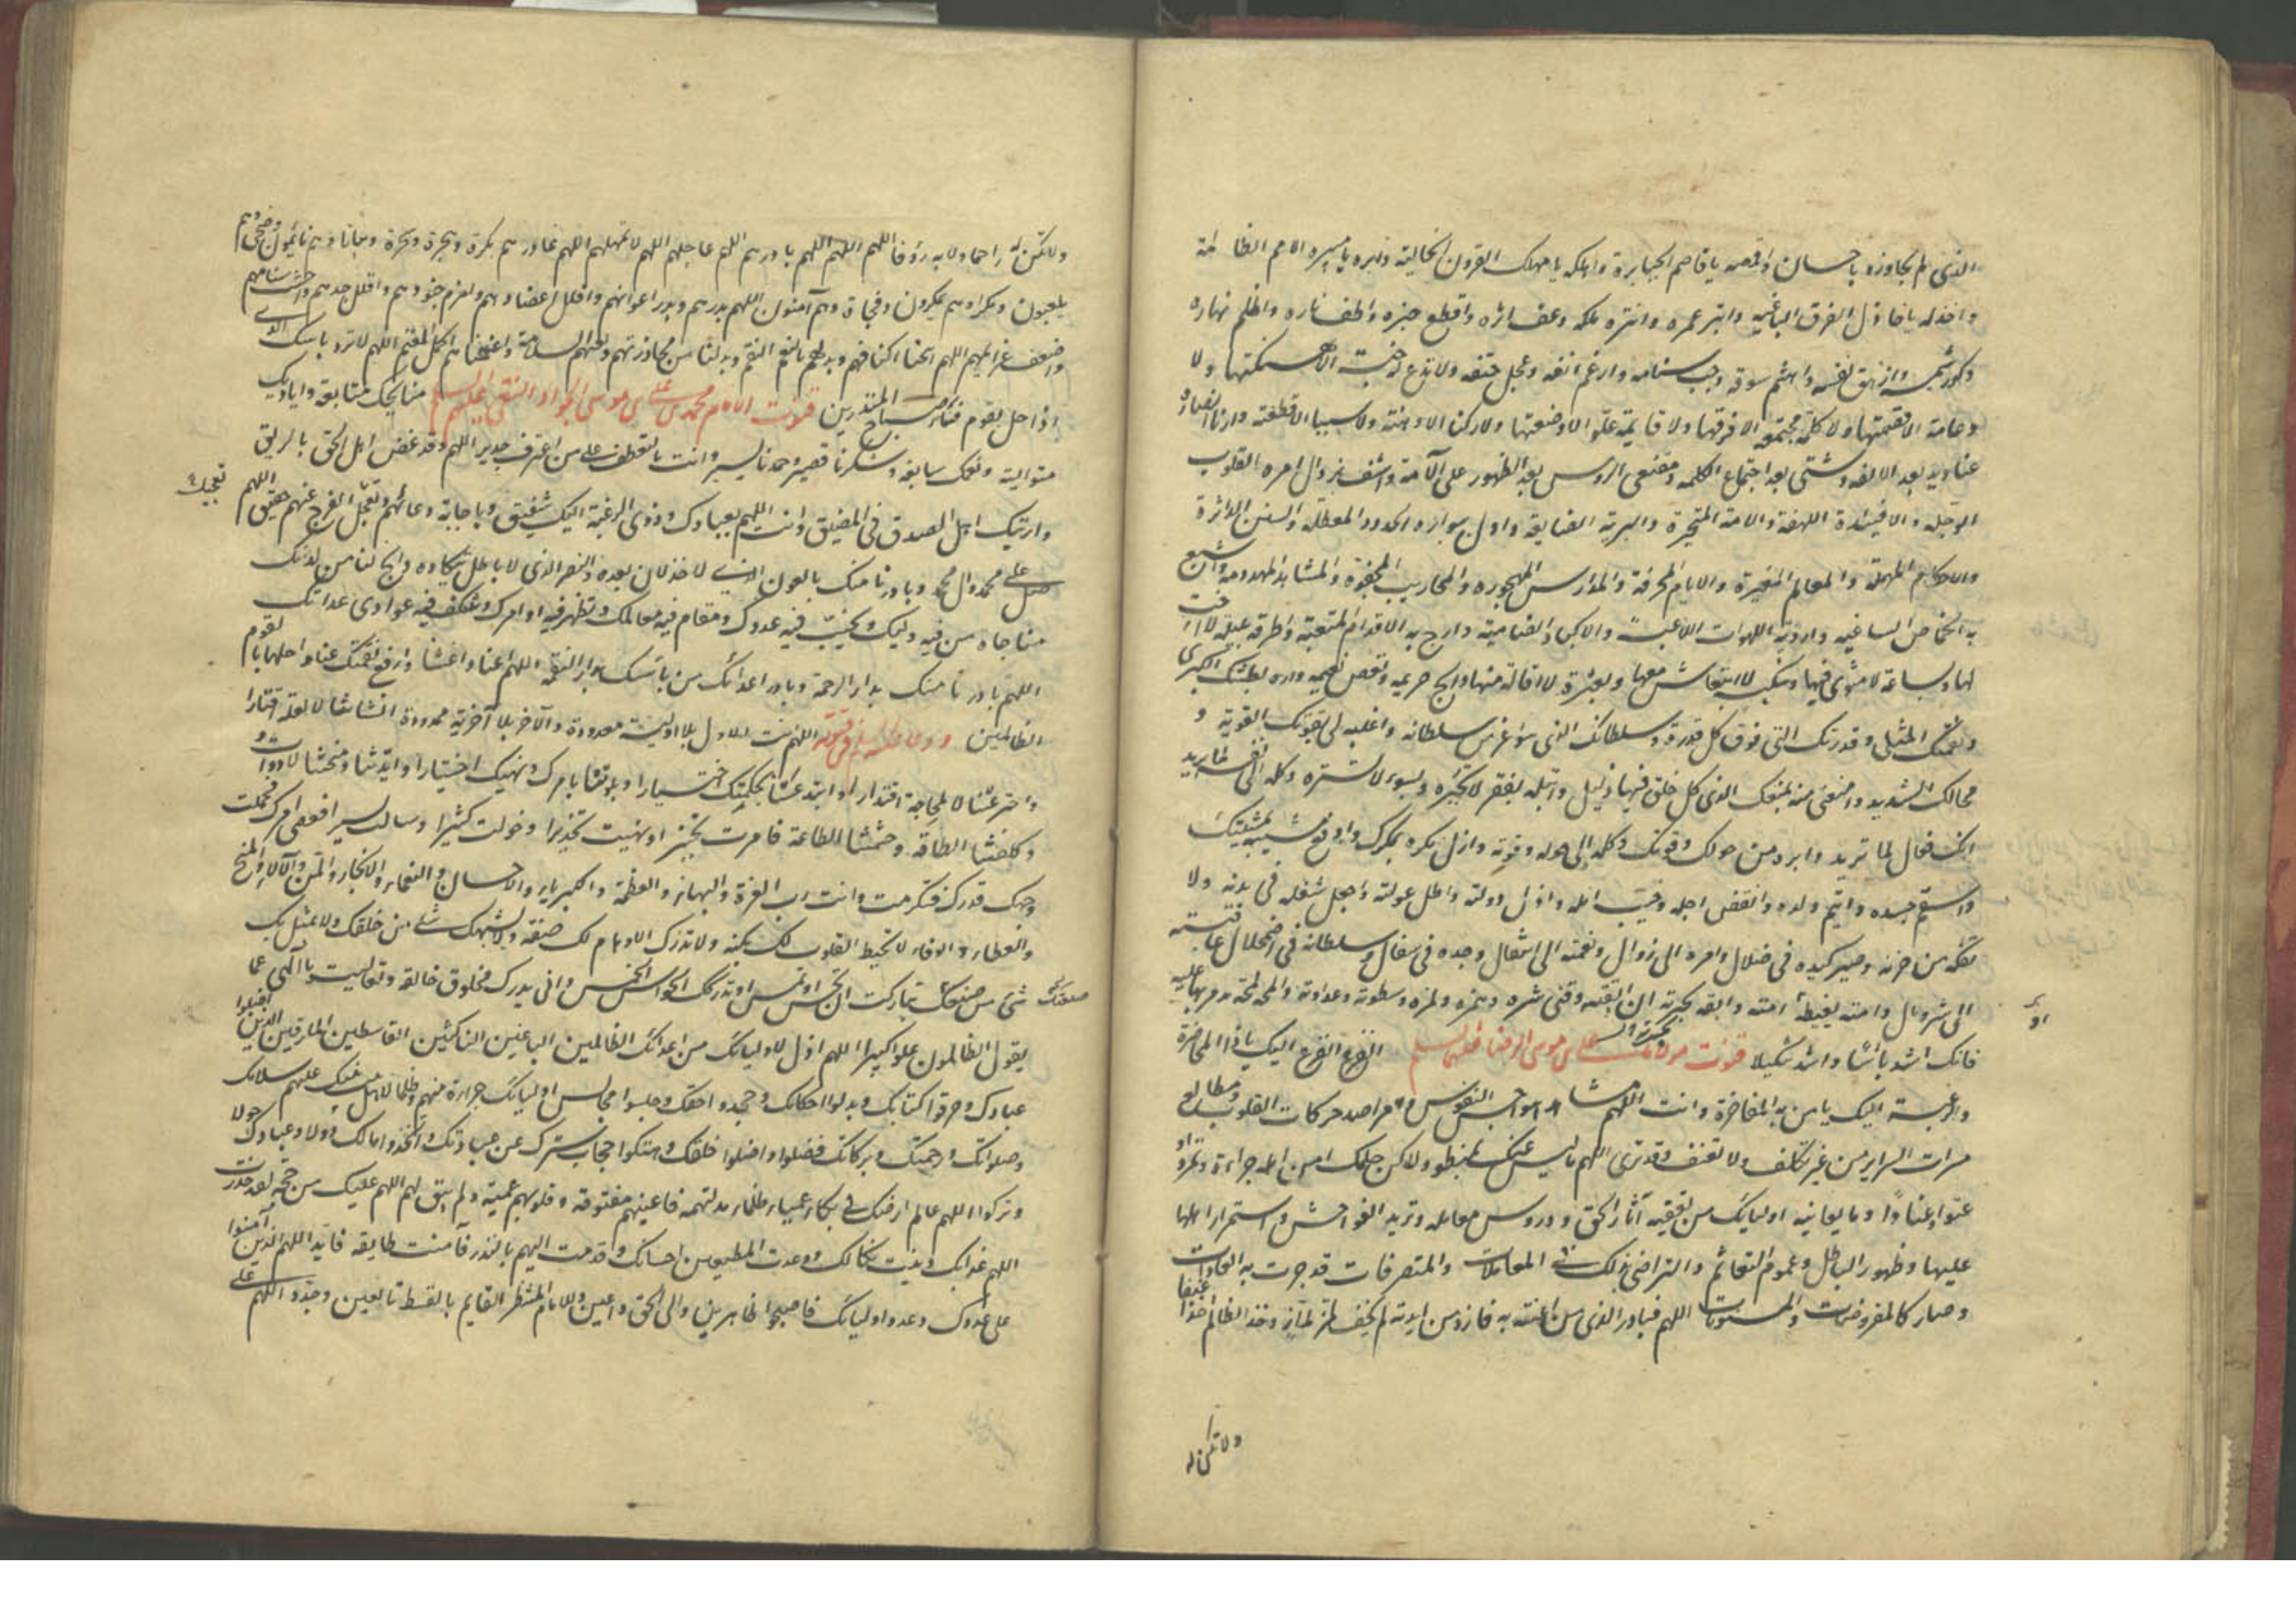 الذى لم يجاوزه باحسان واقصمه يا قاصم الجبابرة واهلكه يا مهلك القرون الخالية وابره يا مبير الامم الظالمة
واخذله يا خاذل الفرق الباغية وابتر عمره وابتزه ملكه وعف اثره واقطع خبره واطف ناره واظلم نهاره
وكور شمسه وازهق نفسه واهشم سوقه وجب سنامه وارغم انفه وعجل حتفه ولا تدع له جنة الا هتكتها ولا
دعامة الا قصمتها ولا كلمة مجتمعة الا فرقتها ولا قايمة علو الا وضعتها ولا ركنا الا وهنته ولا سببا الا قطعته وارنا انصاره
عباديد بعد الالفه وشتى بعد اجتماع الكلمه ومقنعى الروس بعد الظهور على الامة واشف بزوال امره القلوب
الوجله والافئدة اللهفة والامة المتحيرة والبرية الضايعة وادل ببواره الحدود المعطله والسنن الداثرة
والاحكام المهملة والمعالم المغيرة والايام المحرفة والمدارس المهجوره والمحاريب المجفوة والمشاهد المهدومة واشبع
به الخماص الساغبه وارو به اللهوات اللاغبة والاكباد الظامية وارح به الاقدام المتعبة واطرقه بليلة لا اخت
لها وساعة لا مثوى فيها وبنكبة لا انتعاش معها وبعثرة لا اقالة منها وابح حريمه ونغص نعيمه واره بطشتك الكبرى
ونقمتك المثلى وقدرتك التى فوق كل قدرة وسلطانك الذى هو اعز من سلطانه واغلبه لى بقوتك القوية و
محالك الشديد وامنعنى منه بمنعك الذى كل خلق فيها ذليل وابتله بفقر لا تجبره وبسوء لا تستره وكله الى نفسه فيما يريد
انك فعال لما تريد وابره من حولك وقوتك وكله الى حوله وقوته وازل مكره بمكرك وادفع مشيته بمشيتك
واسقم جسده وايتم ولده وانقض اجله وخيب امله وادل دولته واطل عولته واجعل شغله فى بدنه ولا
تفكه من حزنه وصير كيده فى ضلال وامره الى زوال ونعمته الى انتقال وجده فى سفال وسلطانه فى اضمحلال وعاقبته
الى شر مآل وامته بغيظه ان امته وابقه بحسرته ان ابقيته وقنى شره وهمزه ولمزه وسطوته وعداوته والمحه لمحة تدمر بها عليه
فانك اشد باسا واشد تنكيلا قنوت مولانا على بن موسى الرضا عليهما السلم الفزع الفزع اليك ياذا المحاضرة
والرغبة الرغبة اليك يا من به المفاخرة وانت اللهم مشاهد هواجس النفوس ومراصد حركات القلوب ومطالع
مسرات السراير من غير تكلف ولا تعسف وقد ترى اللهم ما ليس عنك بمنطو ولكن حلمك امن اهله جراءة وتمردا
وعتوا وعنادا وما يعانيه اولياؤك من تعفية آثار الحق ودروس معالمه وتزيد الفواحش واستمرار اهلها
عليها وظهور الباطل وعموم التغاشم والتراضى بذلك فى المعاملات والمتصرفات قد جرت به العادات
وصار كالمفروضات والمسنونات اللهم فبادر الذى من اعنته به فاز ومن ايدته لم يخف لمز لماز وخذ الظالم اخذا عنيفا
ولا تكن له
ولا تكن له راحما ولا به رؤفا اللهم اللهم اللهم بادرهم اللهم عاجلهم اللهم لا تمهلهم اللهم غادرهم بكرة وهجرة وسحرة وبياتا وهم نايمون وضحى وهم
يلعبون ومكرا وهم يمكرون وفجاة وهم آمنون اللهم بددهم وبدد اعوانهم وافلل اعضادهم واهزم جنودهم وافلل حدهم واجتث سنامهم
واضعف عزائمهم اللهم امنحنا اكتافهم وبدلهم بالنعم النقم وبدلنا من محاذرتهم وبغيهم السلامة واغنمناهم اكمل المغنم اللهم لا ترد باسك الذى
اذا حل بقوم فساء صباح المنذرين قنوت الامام محمد بن على بن موسى الجواد التقى عليهم السلم منايحك متتابعة واياديك
متوالية ونعمك سابغة وشكرنا قصير وحمدنا يسير وانت بالتعطف على من اعترف جدير اللهم وقد غص اهل الحق بالريق
وارتبك اهل الصدق فى المضيق وانت اللهم بعبادك وذوى الرغبة اليك شفيق وباجابة دعائهم وتعجيل الفرج عنهم حقيق اللهم
صل على محمد وال محمد وبادرنا منك بالعون الذى لا خذلان بعده والنصر الذى لا باطل يتكأده واتح لنا من لدنك
متاحا يامن فيه وليك ويخيب فيه عدوك ويقام فيه معالمك وتظهر فيه اوامرك وتنكف فيه عوادى عداتك
اللهم بادرنا منك بدار الرحمة وبادر اعداءك من باسك بدار النقمة اللهم اعنا واغثنا وارفع نقمتك عنا واحلها بالقوم
الظالمين ودعا عليه السلم فى قنوته اللهم انت الاول بلا اولية معدودة والآخر بلا آخرية محدودة انشاتنا لا لعلة اقتسارا
واخترعتنا لا لحاجة اقتدارا وابتدعتنا بحكمتك اختيارا وبلوتنا بامرك ونهيك اختبارا وايدتنا ومنحتنا بالادوات و
وكلفتنا الطاقة وجشمتنا الطاعة فامرت تخييرا ونهيت تحذيرا وخولت كثيرا وسالت يسيرا فعصى امرك فحلمت
وجهل قدرك فتكرمت وانت رب العزة والبهاء والعظمة والكبرياء والاحسان والنعماء والمن والآلاء والمنح
والعطاء والوفاء لا تحيط القلوب لك بكنه ولا تدرك الاوهام لك صفة ولا يشبهك شىء من خلقك ولا يمثل بك
شىء من صنعتك تباركت ان تحس او تمس او تدركك الحواس الخمس وانى يدرك مخلوق خالقه وتعاليت يا الهى عما
يقول الظالمون علوا كبيرا اللهم ادل لاوليائك من اعدائك الظالمين الباغين الناكثين القاسطين المارقين الذين اضلوا
عبادك وحرفوا كتابك وبدلوا احكامك وجحدوا حقك وجلسوا مجالس اوليائك جراءة منهم وظلما لاهل بيت نبيك عليهم سلامك
وصلواتك ورحمتك وبركاتك فضلوا واضلوا خلقك وهتكوا حجاب سترك عن عبادك واتخذوا مالك دولا وعبادك خولا
وتركوا اللهم عالم ارضك فى بكماء عمياء ظلماء مدلهمة فاعينهم مفتوحة وقلوبهم عمية ولم تبق لهم اللهم عليك من حجة لقد حذرت
اللهم عذابك وبينت نكالك ووعدت المطيعين احسانك وقدمت اليهم بالنذر فآمنت طايفة فايد اللهم الذين آمنوا
على عدوك وعدو اوليائك فاصبحوا ظاهرين والى الحق داعين وللامام المنتظر القايم بالقسط تابعين وجدد اللهم على